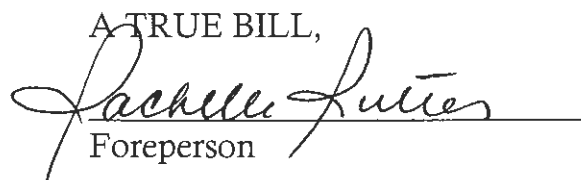 A TRUE BILL,
Rachelle
Foreperson